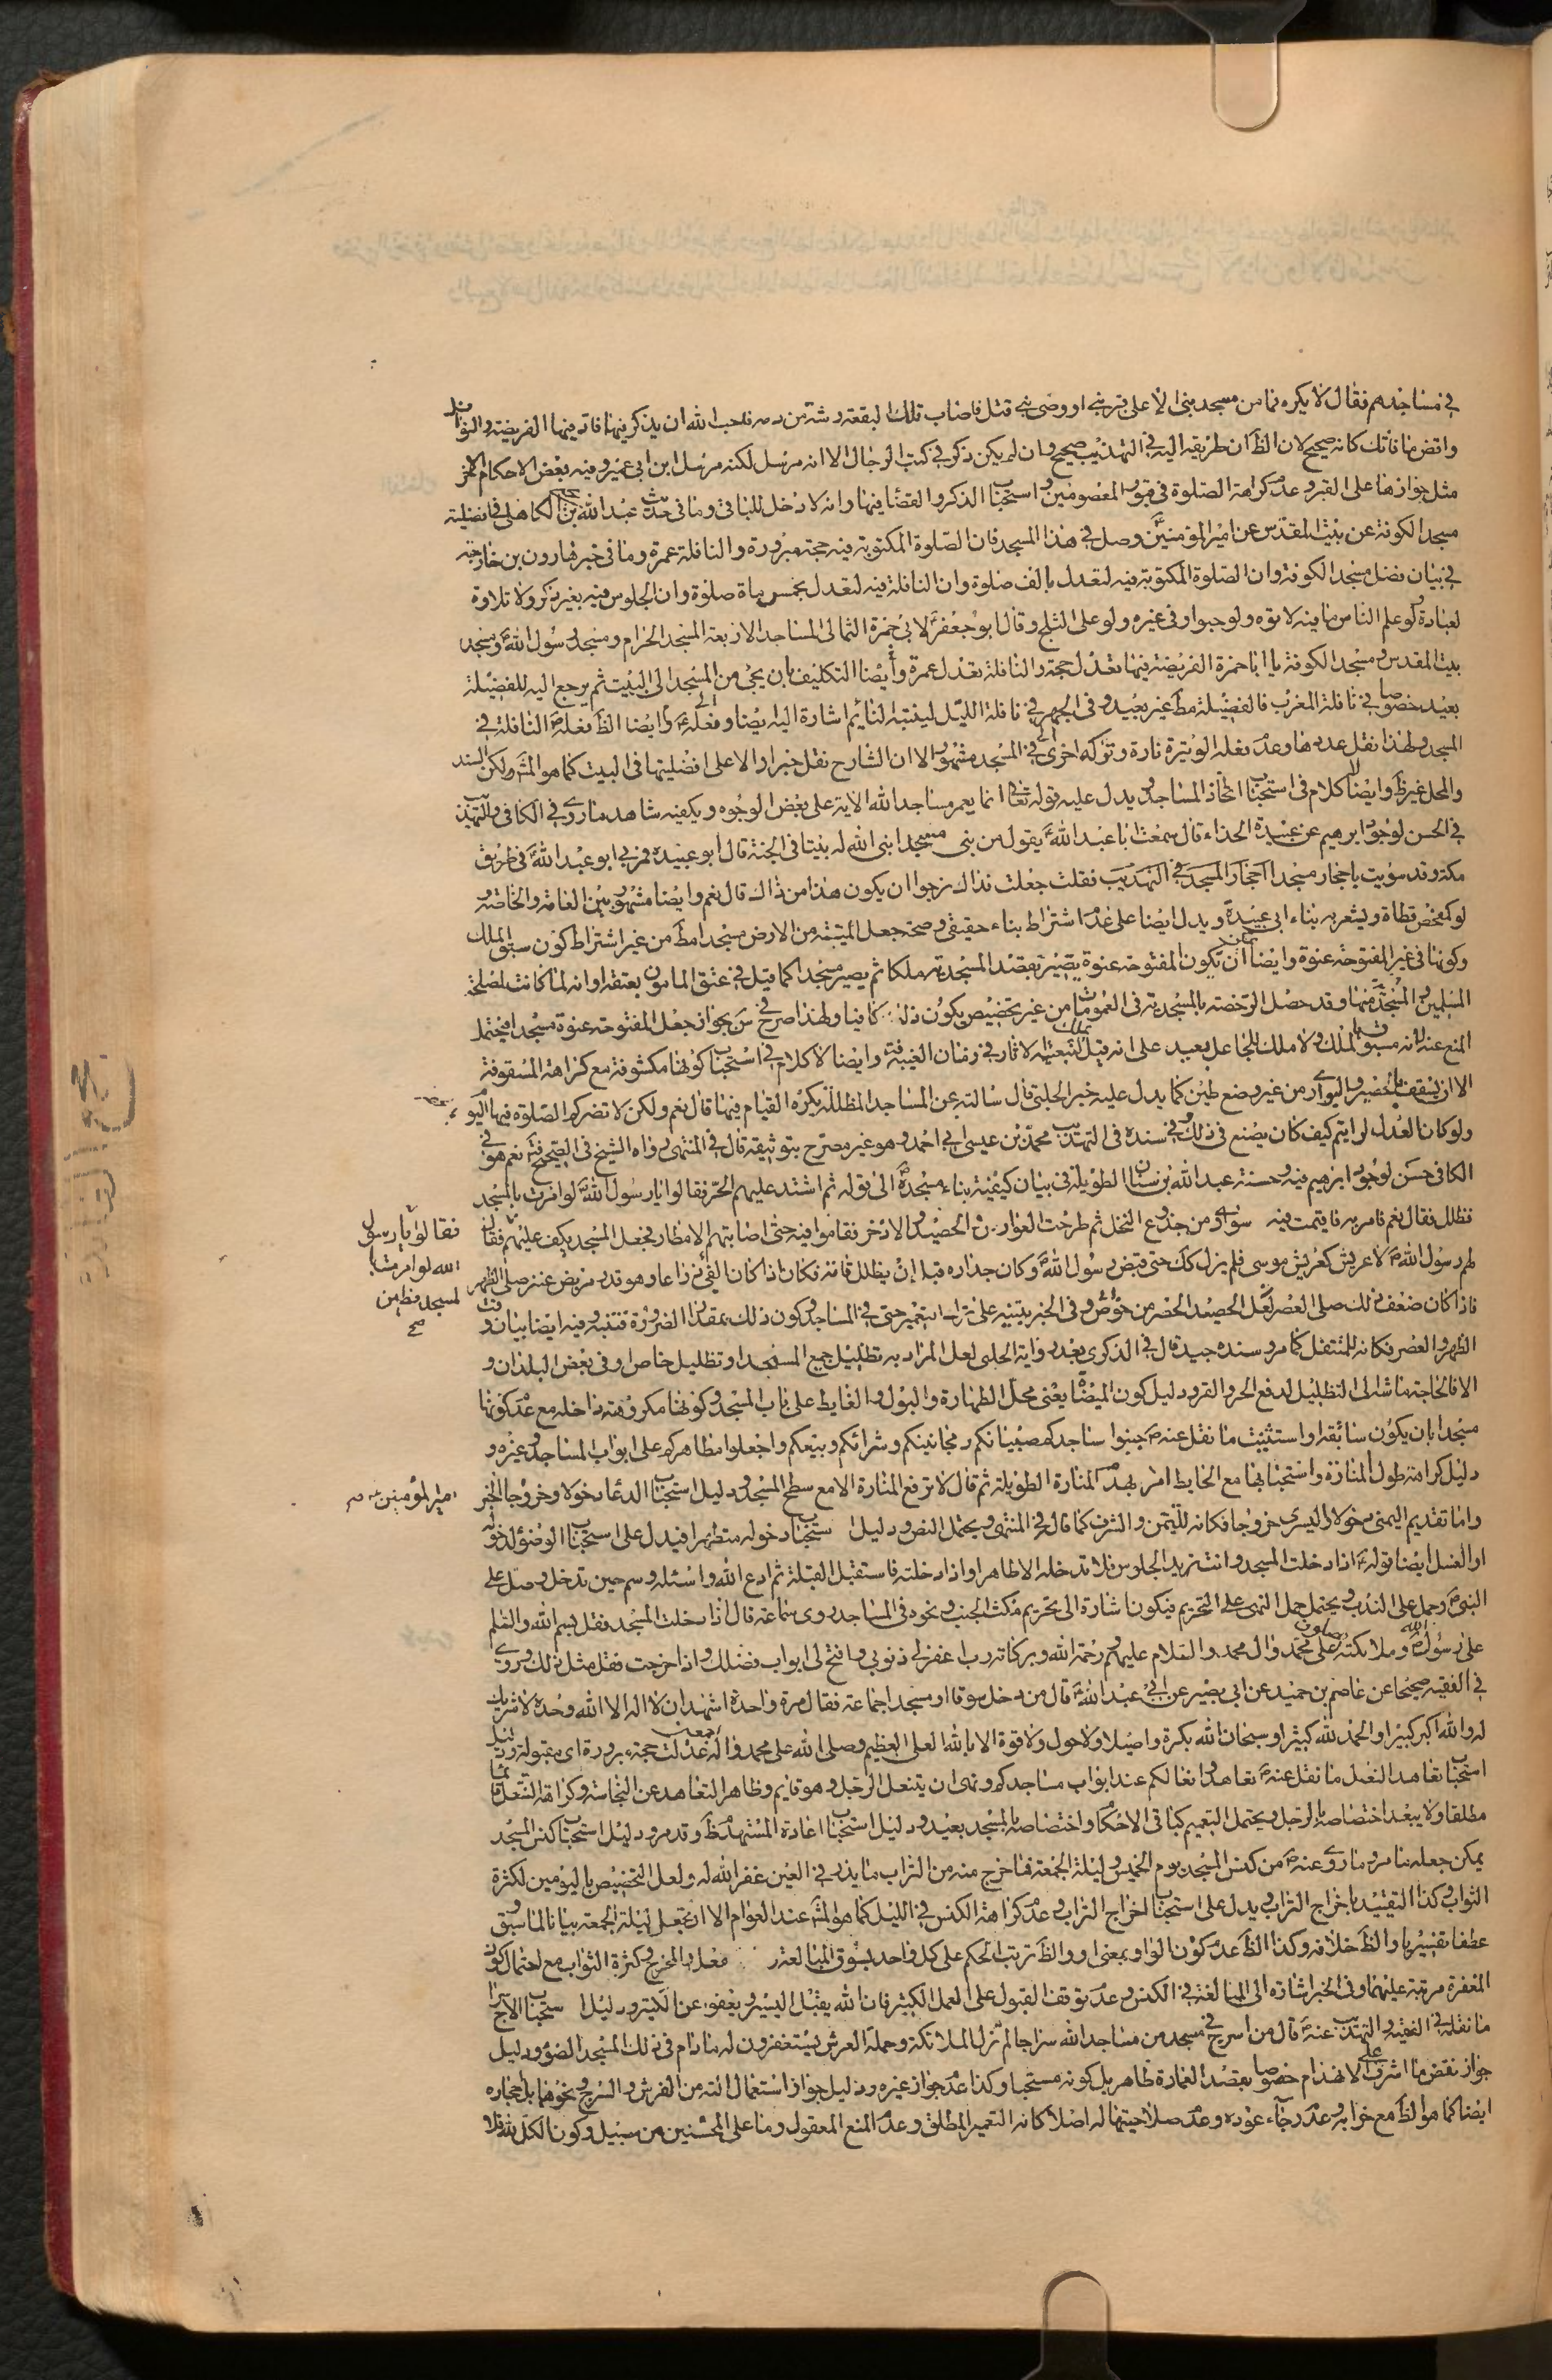 في مساجدهم فقال لا تكره فما من مسجد بنى الا على قبر نبي او وصى نبي قتل فاصاب تلك البقعة رشة من دمه فاحب الله ان يذكر فيها فاد فيها الفريضة والنوافل
واقض ما فاتك كانه صحيح لان الظ ان طريقه اليه في التهذيب صحيح وان لم يكن ذكر في كتب الرجال الا انه مرسل لكنه مرسل ابن ابى عمير وفيه بعض الاحكام الاخر
مثل جوازها على القبر وعدم كراهة الصلوة في قبور المعصومين واستحباب الذكر والقضا فيها وانه لا دخل للبانى وما في حديث عبد الله بن يحيى الكاهلى في فضيلة
مسجد الكوفة عن بيت المقدس عن امير المؤمنين ع وصل في هذا المسجد فان الصلوة المكتوبة فيه حجة مبرورة والنافلة عمرة وما في خبر هارون بن خارجة
في بيان فضل مسجد الكوفة وان الصلوة المكتوبة فيه لتعدل بالف صلوة وان النافلة فيه لتعدل بخمس ماة صلوة وان الجلوس فيه بغير ذكر ولا تلاوة
لعبادة لو علم الناس ما فيه لاتوه ولو حبوا وفى غيره ولو على الثلج وقال ابو جعفر ع لابى حمزة الثمالى المساجد الاربعة المسجد الحرام ومسجد رسول الله ص ومسجد
بيت المقدس ومسجد الكوفة يا ابا حمزة الفريضة فيها تعدل حجة والنافلة تعدل عمرة وأيضا التكليف بان يجئ من المسجد الى البيت ثم يرجع اليه للفضيلة
بعيد خصوصا في نافلة المغرب فالفضيلة مط غير بعيد وفى الجهر في نافلة الليل لينتبه النائم اشارة اليه ايضا وفعله ع وايضا الظ فعله ص النافلة في
المسجد ولهذا نقل عدها وعدم فعله الوتيرة تارة وتركه اخرى في المسجد مشهور الا ان الشارح نقل خبرا دالا على افضليتها في البيت كما هو المش ولكن السند
والمحل غير ظ وايضا لا كلام في استحباب اتخاذ المساجد ويدل عليه قوله تعالى انما يعمر مساجد الله الاية على بعض الوجوه ويكفيه شاهد ما روى في الكافى والتهذيب
في الحسن لوجود ابرهيم عن عبيدة الحذاء قال سمعت ابا عبد الله ع يقول من بنى مسجدا بنى الله له بيتا في الجنة قال ابو عبيدة فمر بي ابو عبد الله ع في طريق
مكة وقد سويت باحجار مسجدا احجار المسجد في التهذيب فقلت جعلت فداك نرجوا ان يكون هذا من ذاك قال نعم وايضا مشهور بين العامة والخاصة
لو كمفحص قطاة ويشعر به بناء ابى عبيدة ويدل ايضا على عدم اشتراط بناء حقيقى وصحة جعل الميتة من الارض مسجدا مط من غير اشتراط كون سبق الملك
وكونها في غير المفتوحة عنوة وايضا يمكن ان يكون المفتوحة عنوة يصير بقصد المسجدية ملكا ثم يصير مسجدا كما قيل في عتق المامور بعتقه او انه لما كانت لمصلحة
المسلمين والمسجد منها وقد حصل الرخصة بالمسجدية في العمومات من غير تخصيص يكون ذلك كافيا ولهذا صرح في س بجواز جعل المفتوحة عنوة مسجدا فيحتمل
المنع عنه لانه مسبوق بالملك ولا ملك للجاعل بعيد على انه قيل تملك تبعية الاثار في زمان الغيبة وايضا لا كلام في استحباب كونها مكشوفة مع كراهة المسقوفة
الا ان يسقف بالحصير والبوارى من غير وضع طين كما يدل عليه خبر الحلبى قال سالته عن المساجد المظللة يكره القيام فيها قال نعم ولكن لا تضركم الصلوة فيها اليوم
ولو كان العدل لرايتم كيف كان يصنع في ذلك وفي سنده في التهذيب محمد بن عيسى ابى احمد وهو غير مصرح بتوثيقه قال في المنتهى رواه الشيخ في الصحيح فت نعم هو في
الكافى حسن لوجود ابرهيم فيه وحسنة عبد الله بن سنان الطويلة في بيان كيفية بناء مسجده ص الى قوله ثم اشتد عليهم الحر فقالوا يا رسول الله ص لو امرت بالمسجد
فظلل فقال نعم فامر به فاقيمت فيه سوارى من جذوع النخل ثم طرحت العوارض والخصف والاذخر فقاموا فيه حتى اصابتهم الامطار فجعل المسجد يكف عليهم فقال
لهم رسول الله ص لا عريش كعريش موسى فلم يزل كك حتى قبض رسول الله ص وكان جداره قبل ان يظلل قامة فكان اذا كان الفئ ذراعا وهو قدر مربض عنز صلى الظهر
فاذا كان ضعف ذلك صلى العصر لعل الحصر من خواص وفى الخبر تنبيه على ترك التعمير حتى في المساجد وكون ذلك بمقدار الضرورة فتنبه وفيه ايضا بيان وقت
الظهر والعصر فكانه للمتنفل كما مر وسنده جيد قال في الذكرى بعد رواية الحلبى لعل المراد به تظليل جميع المسجد او تظليل خاص او في بعض البلدان و
الا فالحاجة ماسة الى التظليل لدفع الحر والقر ودليل كون الميضاة يعنى محل الطهارة والبول والغايط على باب المسجد وكونها مكروهة داخله مع عدم كونها
مسجدا بان يكون سابقه او استثنيت ما نقل عنه ص جنبوا مساجدكم صبيانكم ومجانينكم وشرائكم وبيعكم واجعلوا مطاهركم على ابواب المساجد وغيره و
دليل كراهة طول المنارة واستحبابها مع الحايط امر بهدم المنارة الطويلة ثم قال لا ترفع المنارة الا مع سطح المسجد ودليل استحباب الدعا دخولا وخروجا الخبر
واما تقديم اليمنى دخولا واليسرى خروجا فكانه للتيمن والشرف كما قال في المنتهى ويحتمل النص ودليل استحباب دخوله متطهرا فيدل على استحباب الوضوء لدخوله
او الغسل ايضا قوله ع اذا دخلت المسجد وانت تريد الجلوس فلا تدخله الا طاهرا واذا دخلته فاستقبل القبلة ثم ادع الله واسئله وسم حين تدخل وصل على
النبى ص وحمل على الندب ويحتمل حمل النهى على التحريم فيكون اشارة الى تحريم مكث الجنب ونحوه في المساجد وروى سماعة قال اذا دخلت المسجد فقل بسم الله والسلم
على رسول الله ص وملائكته على محمد وال محمد والسلام عليهم ورحمة الله وبركاته رب اغفر لى ذنوبى وافتح لى ابواب فضلك واذا خرجت فقل مثل ذلك وروى
في الفقيه صحيحا عن عاصم بن حميد عن ابى بصير عن ابى عبد الله ع قال من دخل سوقا او مسجد جماعة فقال مرة واحدة اشهد ان لا اله الا الله وحده لا شريك
له والله اكبر كبيرا والحمد لله كثيرا وسبحان الله بكرة واصيلا ولا حول ولا قوة الا بالله العلى العظيم وصلى الله على محمد واله اجمعين عدلت حجة مبرورة اى مقبولة ودليل
استحباب تعاهد النعل ما نقل عنه ص تعاهدوا نعالكم عند ابواب مساجدكم ونهى ان يتنعل الرجل وهو قايم وظاهر التعاهد عن النجاسة وكراهة التنعل قايما
مطلقا ولا يبعد اختصاصه بالرجل ويحتمل التعميم كباقى الاحكام واختصاصه بالمسجد بعيد ودليل استحباب اعادة المستهدم ظ وقد مر ودليل استحباب كنس المسجد
يمكن جعله ما مر وما روى عنه ص من كنس المسجد يوم الخميس وليلة الجمعة فاخرج منه من التراب ما يذر في العين غفر الله له ولعل التخصيص باليومين لكثرة
الثواب وكذا التقييد باخراج التراب ويدل على استحباب اخراج التراب وعدم كراهة الكنس في الليل كما هو المش عند العوام الا ان تجعل ليلة الجمعة بيانا لما سبق
عطفا تفسيريا والظ خلافه وكذا الظ عدم كون الواو بمعنى او والظ ترتب الحكم على كل واحد بسوق المبالغة فعل المخرج كثرة الثواب مع احتمال كون
المغفرة مرتبة عليهما وفى الخبر اشارة الى المبالغة في الكنس وعدم توقف القبول على العمل الكثير فان الله يقبل اليسير ويعفو عن الكثير ودليل استحباب الاسراج
ما نقله في الفقيه والتهذيب عنه ع قال من اسرج في مسجد من مساجد الله سراجا لم تزل الملائكة وحملة العرش يستغفرون له ما دام في ذلك المسجد الضوء ودليل
جواز نقض ما اشرف على الانهدام خصوصا بقصد العمارة ظاهر بل كونه مستحبا وكذا عدم جواز غيره ودليل جواز استعمال الته من الفرش والسرج ونحوها بل احجاره
ايضا كما هو الظ مع خرابه وعدم رجاء عوده وعدم صلاحيتها له اصلا كانه التعمير المطلق وعدم المنع المعقول وما على المحسنين من سبيل وكون الكل لله فلا
فقالوا يا رسول
الله لو امرت با
لمسجد فطين
صح
امير المؤمنين ع